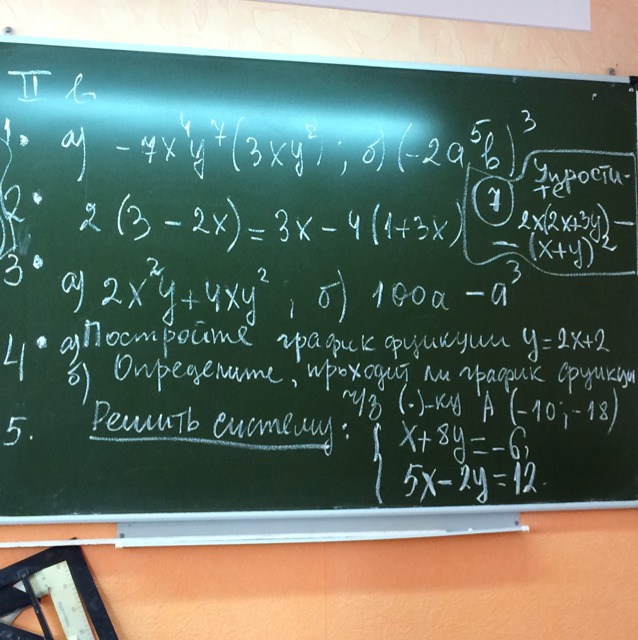 II в
1. а) -7x⁴y⁷(3xy²); б) (-2a⁵b)³
2. 2(3 - 2x) = 3x - 4(1+3x)
3. а) 2x²y + 4xy²; б) 100a - a³
4. а) Постройте график функции y = 2x+2
б) Определите, проходит ли график функции
ч/з (·)-ку A (-10; -18)
5. Решить систему: { x + 8y = -6,
5x - 2y = 12.
1 Упрости-
те
2x(2x+3y) -
- (x+y)²